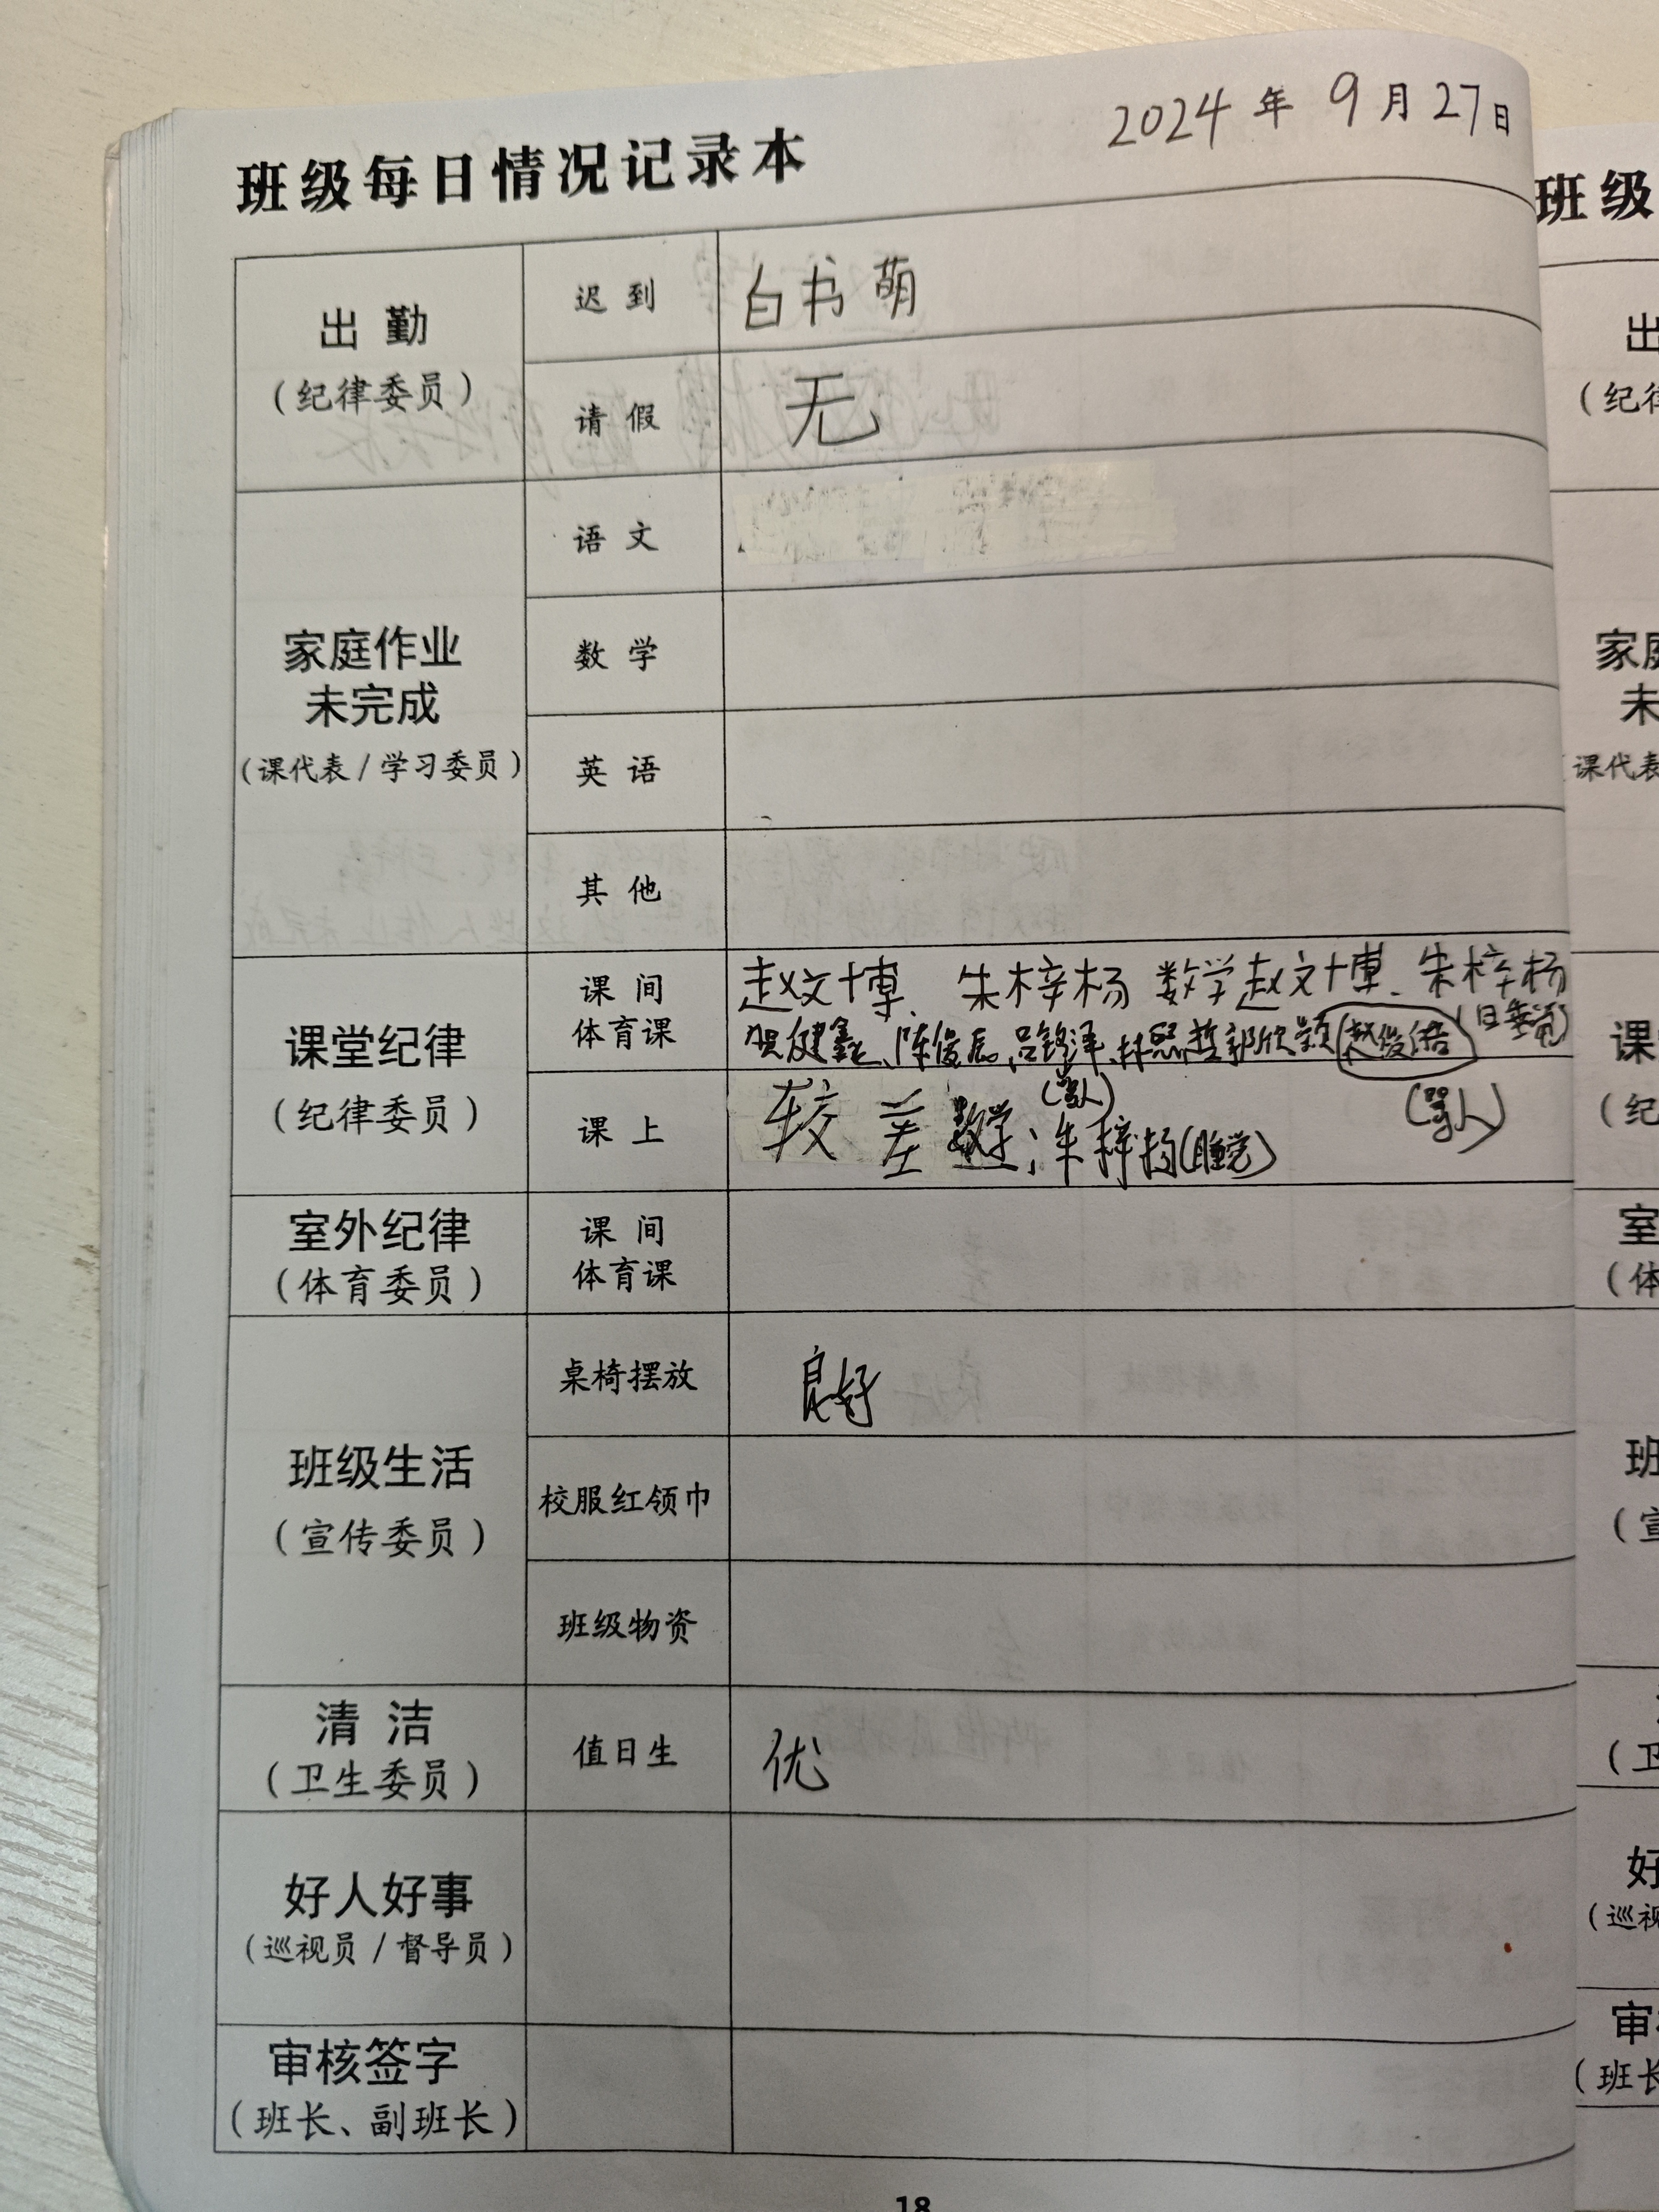 2024年9月27日
班级每日情况记录本
出勤
(纪律委员)
迟到
白书萌
请假
无
家庭作业
未完成
(课代表/学习委员)
语文
数学
英语
其他
课堂纪律
(纪律委员)
课间
体育课
赵文博、朱梓杨 数学赵文博、朱梓杨
贺健鑫、陈俊辰、吕铭泽、林熙哲郭欣颖 赵俊
(睡觉)
课上
较差 数学:朱梓杨(睡觉)
(骂人)
(骂人)
室外纪律
(体育委员)
课间
体育课
班级生活
(宣传委员)
桌椅摆放
良好
校服红领巾
班级物资
清洁
(卫生委员)
值日生
优
好人好事
(巡视员/督导员)
审核签字
(班长、副班长)
18
班级
出
(纪
家
未
课代表
课
(纪
室
(体
班
(宣
(卫
好
(巡视
审
(班长